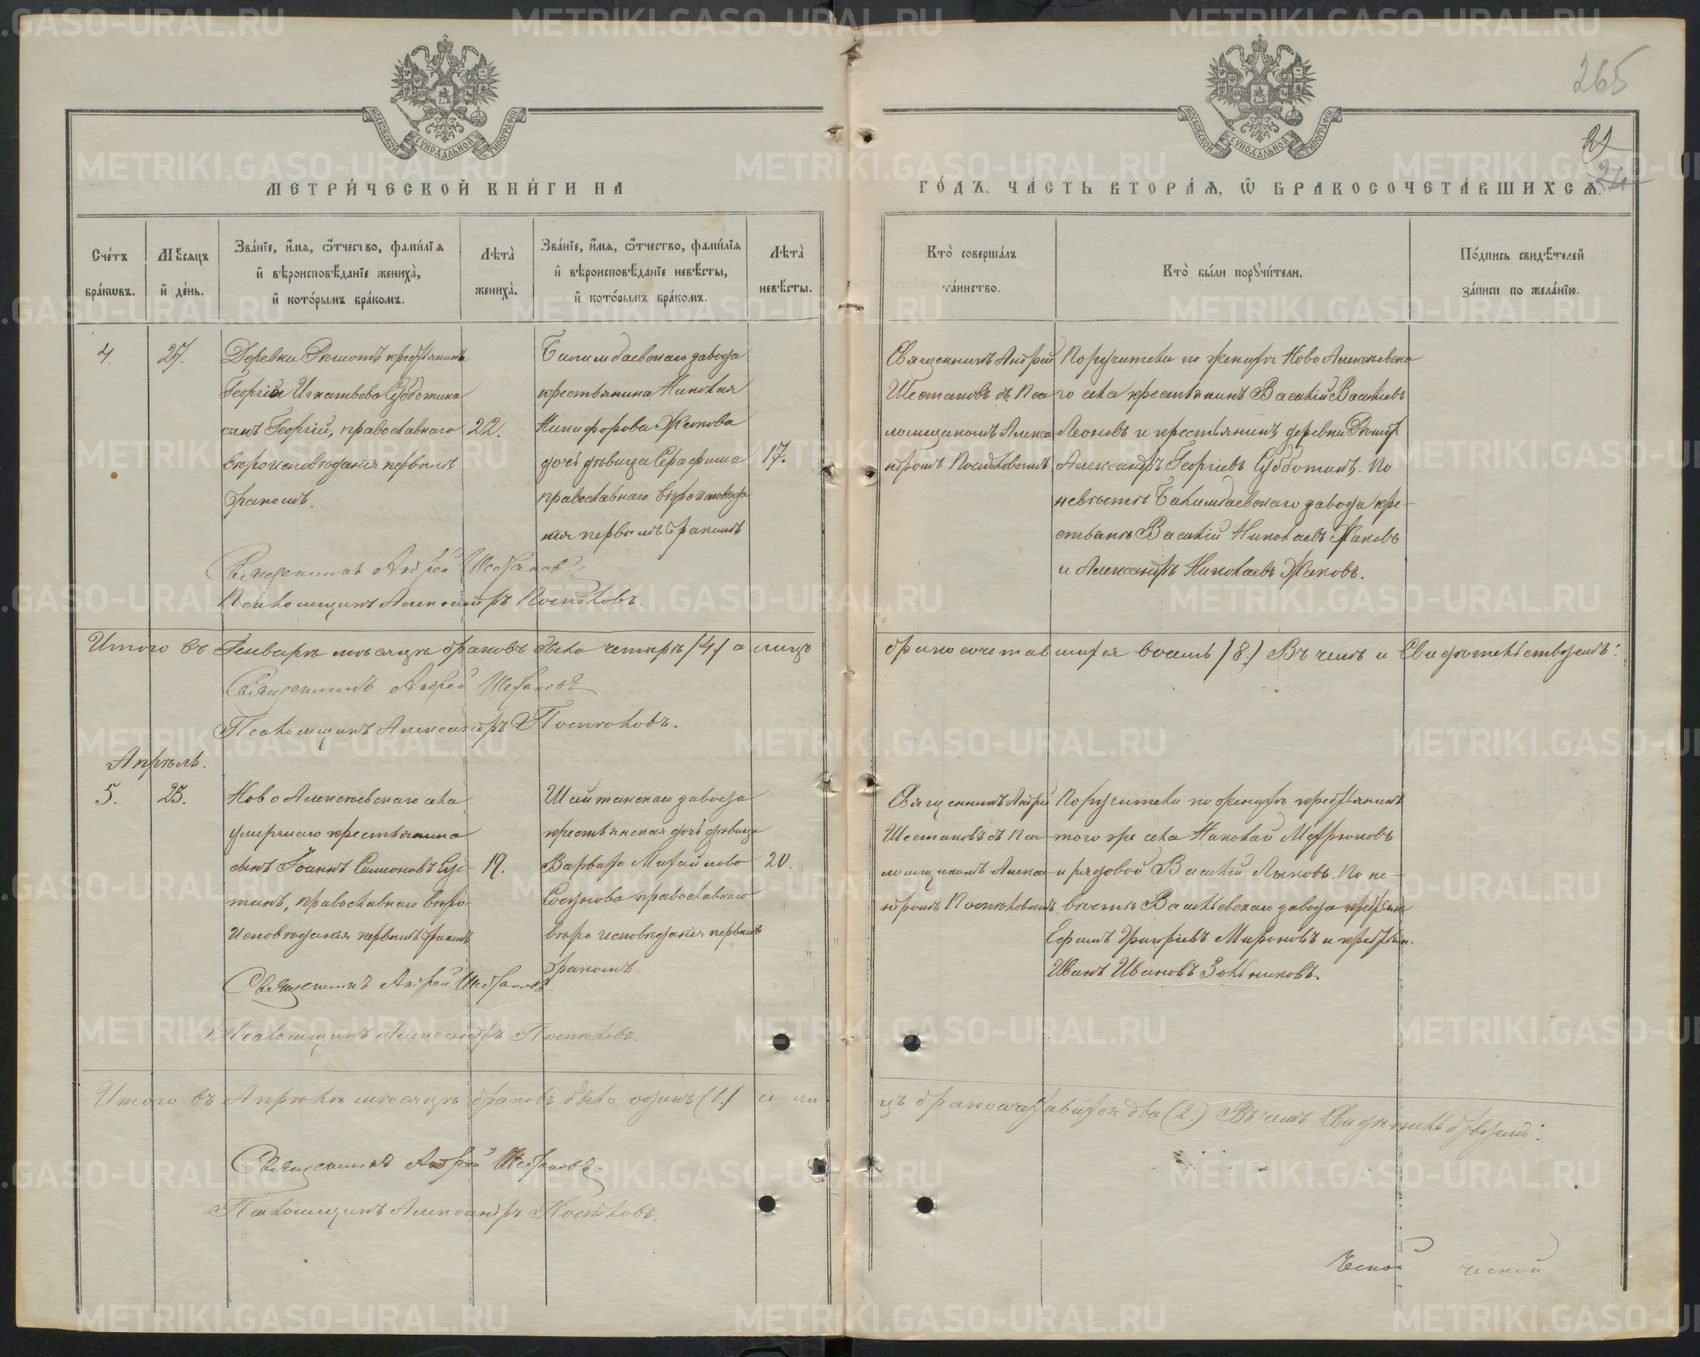 265
21
24
МЕТРИ́ЧЕСКОЙ КНИ́ГИ НА
ГО́ДЪ. ЧА́СТЬ ВТОРА́Я, Ѡ БРАКОСОЧЕТА́ВШИХСЯ.
Сче́тъ бра́ковъ.
Мѣ́сяцъ и де́нь.
Зва́нїе, и́мя, ѻ́тчество, фами́лїя
и вѣроисповѣ́данїе жениха̀,
и кото́рымъ бра́комъ.
Лѣта̀ жениха̀.
Зва́нїе, и́мя, ѻ́тчество, фами́лїя
и вѣроисповѣ́данїе невѣ́сты,
и кото́рымъ бра́комъ.
Лѣта̀ невѣ́сты.
Кто̀ соверша́лъ та́инство.
Кто̀ бы́ли поручи́тели.
По́дпись свидѣ́телей за́писи по жела́нїю.
4.
27.
Деревни Решотъ крестьянинъ
Георгія Игнатьева Субботина
сынъ Георгій, православнаго
вѣроисповѣданія первымъ
бракомъ.
22.
Билимбаевскаго завода
крестьянина Николая
Никифорова Жакова
дочь дѣвица Серафима
православнаго вѣроисповѣда
нія первымъ бракомъ
17.
Священникъ Андрей
Шестаковъ съ Пса
ломщикомъ Алекса
ндромъ Постниковымъ
Поручители по женихѣ Ново Алексѣевска
го села крестьянинъ Василій Васильевъ
Леоновъ и крестьянинъ деревни Решотъ
Александръ Георгіевъ Субботинъ. По
невѣстѣ Билимбаевскаго завода кре-
стьяне Василій Николаевъ Жаковъ
и Александръ Николаевъ Жаковъ.
Священникъ Андрей Шестаковъ
Псаломщикъ Александръ Постниковъ.
Итого въ Генварѣ мѣсяцѣ браковъ было четыре /4/ а лицъ
бракосочетавшихся восемь /8./ Въ чемъ и Свидѣтельствуемъ:
Священникъ Андрей Шестаковъ
Псаломщикъ Александръ Постниковъ.
Апрѣль.
5.
23.
Ново Алексѣевскаго села
умершаго крестьянина
сынъ Іоаннъ Симоновъ
православнаго вѣро-
исповѣданія первымъ бракомъ
19.
Шайтанскаго завода
крестьянская дочь дѣвица
Варвара Михайлова
православнаго
вѣроисповѣданія первымъ
бракомъ.
20.
Священникъ Андрей
Шестаковъ съ Пса-
ломщикомъ Алекса
ндромъ Постниковымъ
Поручители по женихѣ крестьянинъ
того же села Николай
и рядовой Василій Лыковъ. По не-
вѣстѣ Васильевскаго завода крестьян.
Ефимъ Григорьевъ Мироновъ и крестьян.
Иванъ Ивановъ Зольниковъ.
Священникъ Андрей Шестаковъ.
Псаломщикъ Александръ Постниковъ.
Итого въ Апрѣлѣ мѣсяцѣ браковъ было одинъ (1./ а ли
цъ бракосочетавшихся два (2.) Въ чемъ Свидѣтельствуемъ:
Священникъ Андрей Шестаковъ.
Псаломщикъ Александръ Постниковъ.
METRIKI.GASO-URAL.RU